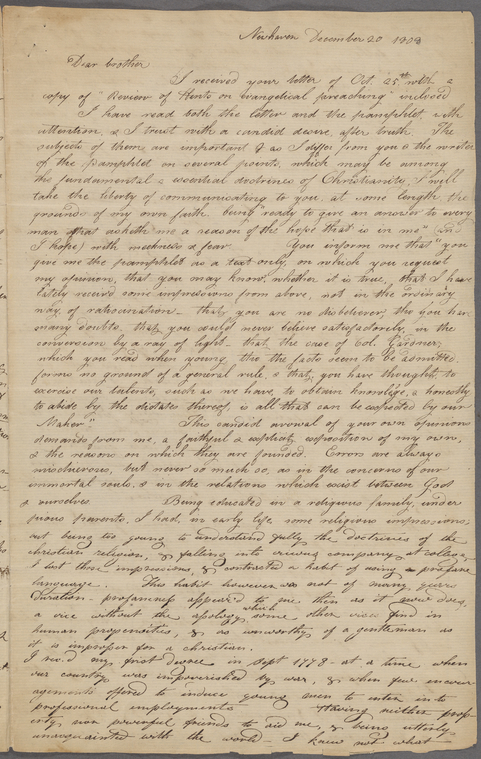 Newhaven December 20 1808
Dear brother
I received your letter of Oct. 25th with a
copy of "Review of Hints on evangelical preaching" inclosed
I have read both the letter and the pamphlet, with
attention, & I trust with a candid desire after truth. The
subjects of them are important & as I differ from you & the writer
of the pamphlet on several points, which may be among
the fundamental & essential doctrines of Christianity, I will
take the liberty of communicating to you, at some length, the
grounds of my own faith. being "ready to give an answer to every
man that asketh me a reason of the hope that is in me" (in
I hope) with meekness & fear. You inform me that "you
give me the pamphlet as a text only, on which you request
my opinion, that you may know, whether it is true, that I have
lately received some impressions from above, not in the ordinary
way of ratiocination - that you are no disbeliever, tho you have
many doubts, that you could never believe satisfactorily in the
conversion by a ray of light - that the case of Col. Gardner,
which you read when young, tho the facts seem to be admitted,
forms no ground of a general rule, & that, you have thought, to
exercise our talents, such as we have, to obtain knowlege, & honestly
to abide by the dictates thereof, is all that can be expected by our
Maker". This candid avowal of your own opinions
demands from me, a faithful & explicit exposition of my own,
& the reasons on which they are founded. Errors are always
mischievous, but never so much so, as in the concerns of our
immortal souls, & in the relations which exist between God
& ourselves. Being educated in a religious family, under
pious parents, I had, in early life, some religious impressions,
but being too young to understand fully the doctrines of the
christian religion, & falling into vicious company at college,
I lost those impressions, & contracted a habit of using profane
language. This habit however was not of many years
duration - profaneness appeared to me, then as it now does,
a vice without the apology, which some other vices find in
human propensities, & as unworthy of a gentleman as
it is improper for a christian.
I rec.d my first degree in Sept 1778 - at a time when
our country was impoverished by war, & when few encour
agements offered to induce young men to enter into
professional employments Having neither prop-
erty, nor powerful friends to aid me, & being utterly
unacquainted with the world - I knew not what